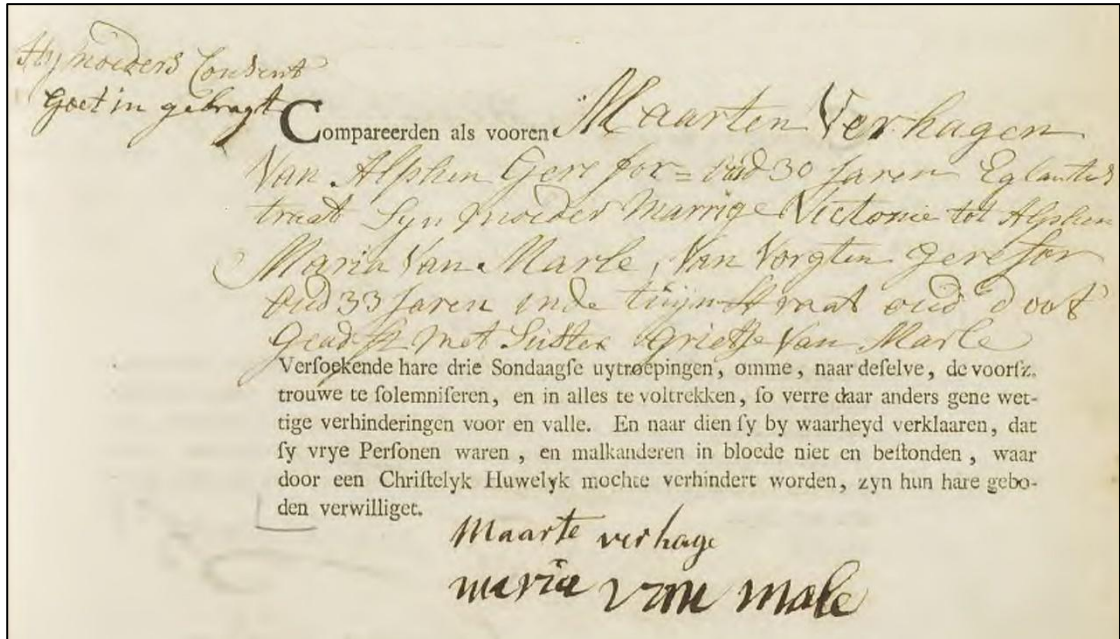 Hy moeders Consent
goet in gebragt
Compareerden als vooren Maarten Verhagen
Van Alphen Geref for = oud 30 Jaren Eglantiers
traat Syn moeder Marrige Victorie tot Alphen
Maria Van Marle, Van Vorgten geref for
oud 33 Jaren inde tuijnstraat oud doot
Geadst met Suster Grietje Van Marle
Verſoekende hare drie Sondaagſe uytroepingen, omme, naar deſelve, de voorſz.
trouwe te ſolemniſeren, en in alles te voltrekken, ſo verre daar anders gene wet-
tige verhinderingen voor en valle. En naar dien ſy by waarheyd verklaaren, dat
ſy vrye Perſonen waren, en malkanderen in bloede niet en beſtonden, waar
door een Chriſtelyk Huwelyk mochte verhindert worden, zyn hun hare gebo-
den verwilliget.
Maarte verhage
maria van male